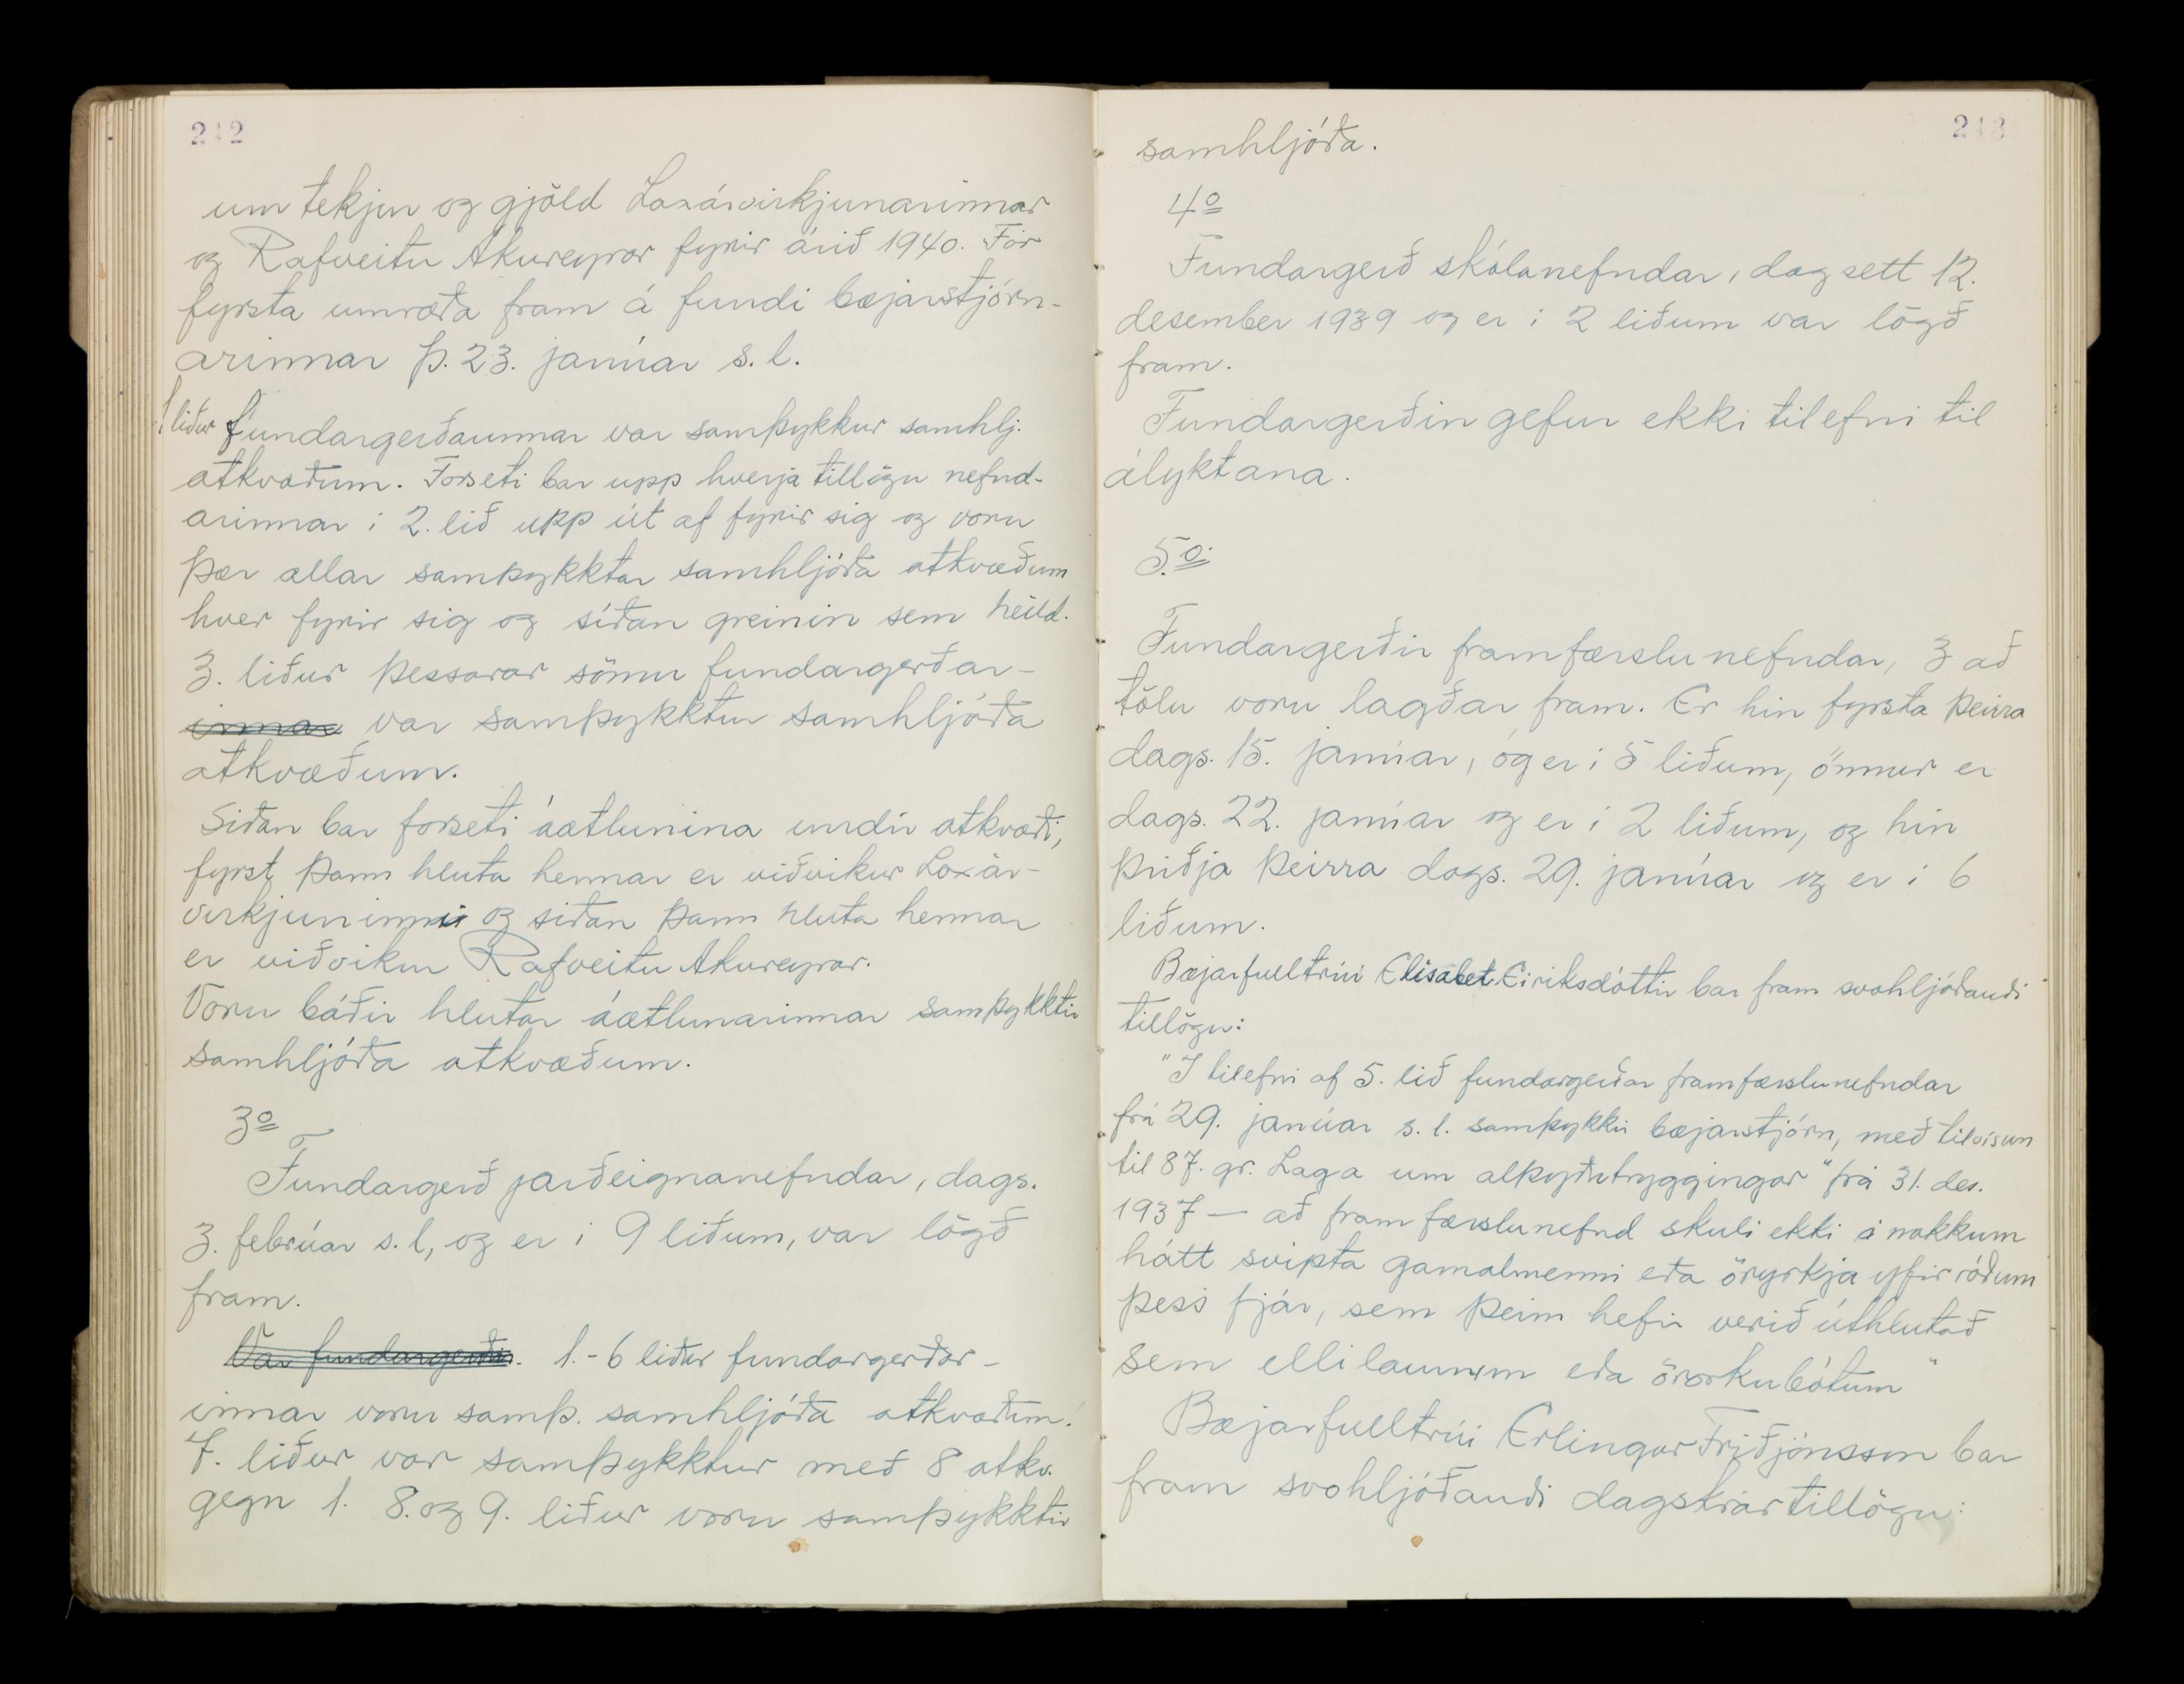 242
um tekjur og gjöld Laxárvirkjunarinnar
og Rafveitu Akureyrar fyrir árið 1940. Fór
fyrsta umræða fram á fundi bæjarstjórn-
arinnar þ. 23. janúar s.l.
1. liður fundargerðarinnar var samþykkur samhlj.
atkvæðum. Forseti bar upp hverja tillögu nefnd-
arinnar í 2. lið upp út af fyrir sig og voru
þær allar samþykktar samhljóða atkvæðum
hver fyrir sig og síðan greinin sem heild.
3. liður þessarar sömu fundargerðar-
innar var samþykktur samhljóða
atkvæðum.
Síðan bar forseti áætlunina undir atkvæði,
fyrst þann hluta hennar er viðvíkur Laxár-
virkjuninni og síðan þann hluta hennar
er viðvíkur Rafveitu Akureyrar.
Voru báðir hlutar áætlunarinnar samþykktir
samhljóða atkvæðum.
3º
Fundargerð jarðeignanefndar, dags.
3. febrúar s.l, og er í 9 liðum, var lögð
fram.
Var fundargerðin. 1.-6 liður fundargerðar-
innar voru samþ. samhljóða atkvæðum.
7. liður var samþykktur með 8 atkv.
gegn 1. 8. og 9. liður voru samþykktir
243
samhljóða.
4º
Fundargerð skólanefndar, dagsett 12.
desember 1939 og er í 2 liðum var lögð
fram.
Fundargerðin gefur ekki tilefni til
ályktana.
5.º
Fundargerðir framfærslunefndar, 3 að
tölu voru lagðar fram. Er hin fyrsta þeirra
dags. 15. janúar, og er í 5 liðum, önnur er
dags. 22. janúar og er í 2 liðum, og hin
þriðja þeirra dags. 29. janúar og er í 6
liðum.
Bæjarfulltrúi Elísabet Eiríksdóttir bar fram svohljóðandi
tillögu:
"Í tilefni af 5. lið fundargerðar framfærslunefndar
frá 29. janúar s.l. samþykkir bæjarstjórn, með tilvísun
til 87. gr. Laga um alþýðutryggingar" frá 31. des.
1937 — að framfærslunefnd skuli ekki á nokkurn
hátt svipta gamalmenni eða öryrkja yfirráðum
þess fjár, sem þeim hefir verið úthlutað
sem ellilaunum eða örorkubótum"
Bæjarfulltrúi Erlingur Friðjónsson bar
fram svohljóðandi dagskrártillögu: